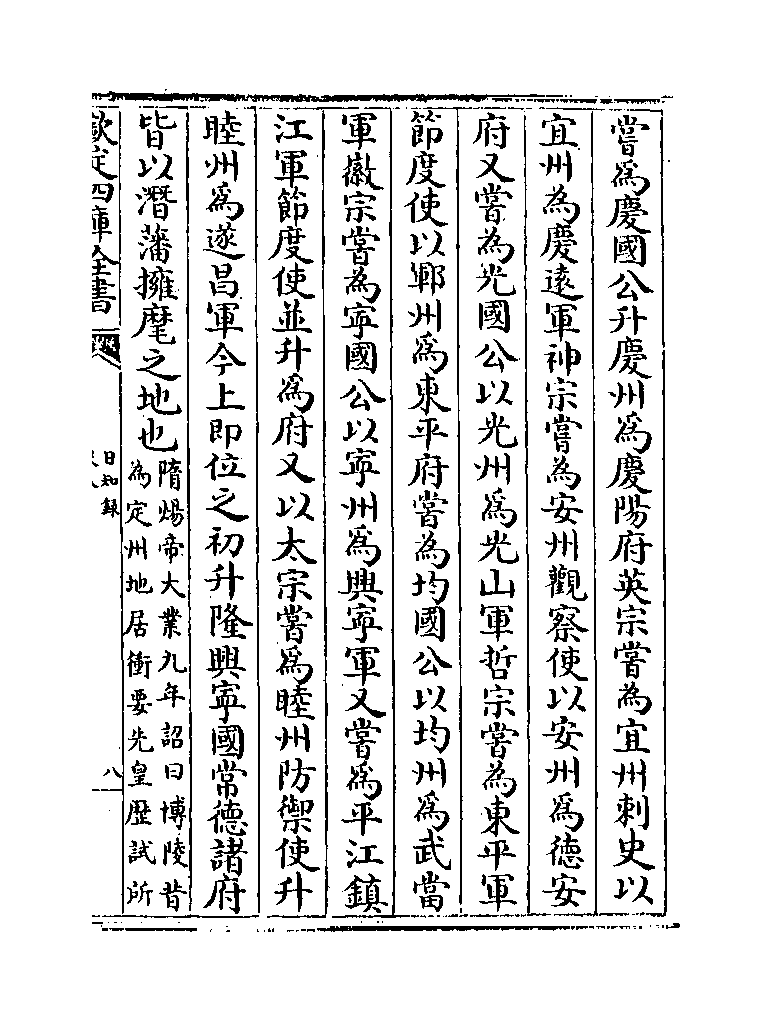 嘗為慶國公升慶州為慶陽府英宗嘗為宜州刺史以
宜州為慶遠軍神宗嘗為安州觀察使以安州為德安
府又嘗為光國公以光州為光山軍哲宗嘗為東平軍
節度使以鄆州為東平府嘗為均國公以均州為武當
軍徽宗嘗為寜國公以寜州為興寜軍又嘗為平江鎮
江軍節度使並升為府又以太宗嘗為睦州防禦使升
睦州為遂昌軍今上即位之初升隆興寜國常德諸府
皆以潛藩擁麾之地也
隋煬帝大業九年詔曰博陵昔
為定州地居衝要先皇歴試所
欽定四庫全書
日知録
八